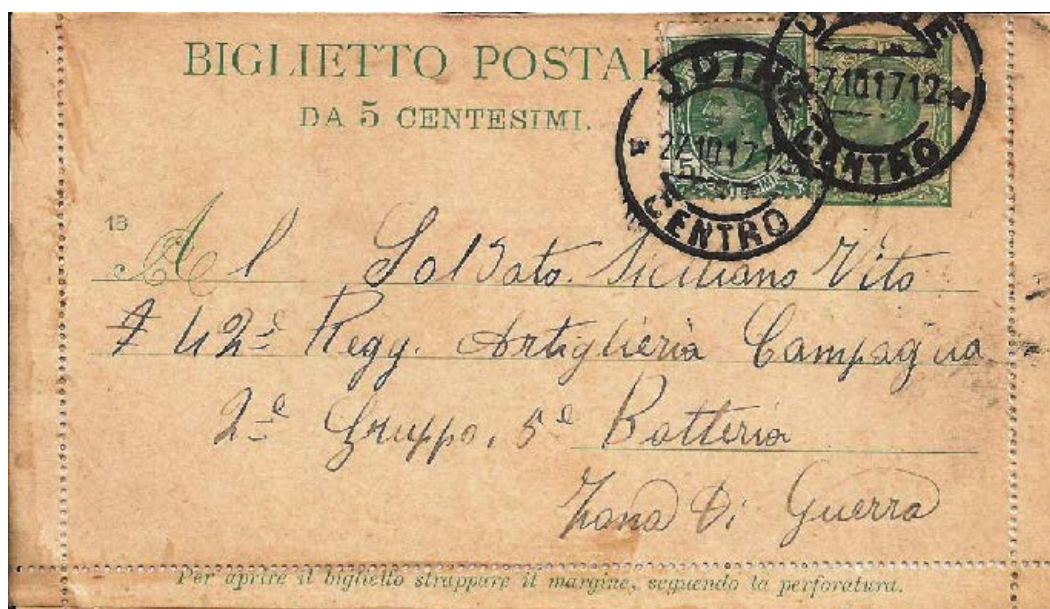 BIGLIETTO POSTAL
DA 5 CENTESIMI.
UDINE
27.10.17.1
CENTRO
27.10.17 12
CENTRO
18
Al Soldato Siciliano Vito
42ª Regg. Artiglieria Campagna
2º Gruppo, 5ª Batteria
Zona Di Guerra
Per aprire il biglietto strappare il margine, seguendo la perforatura.